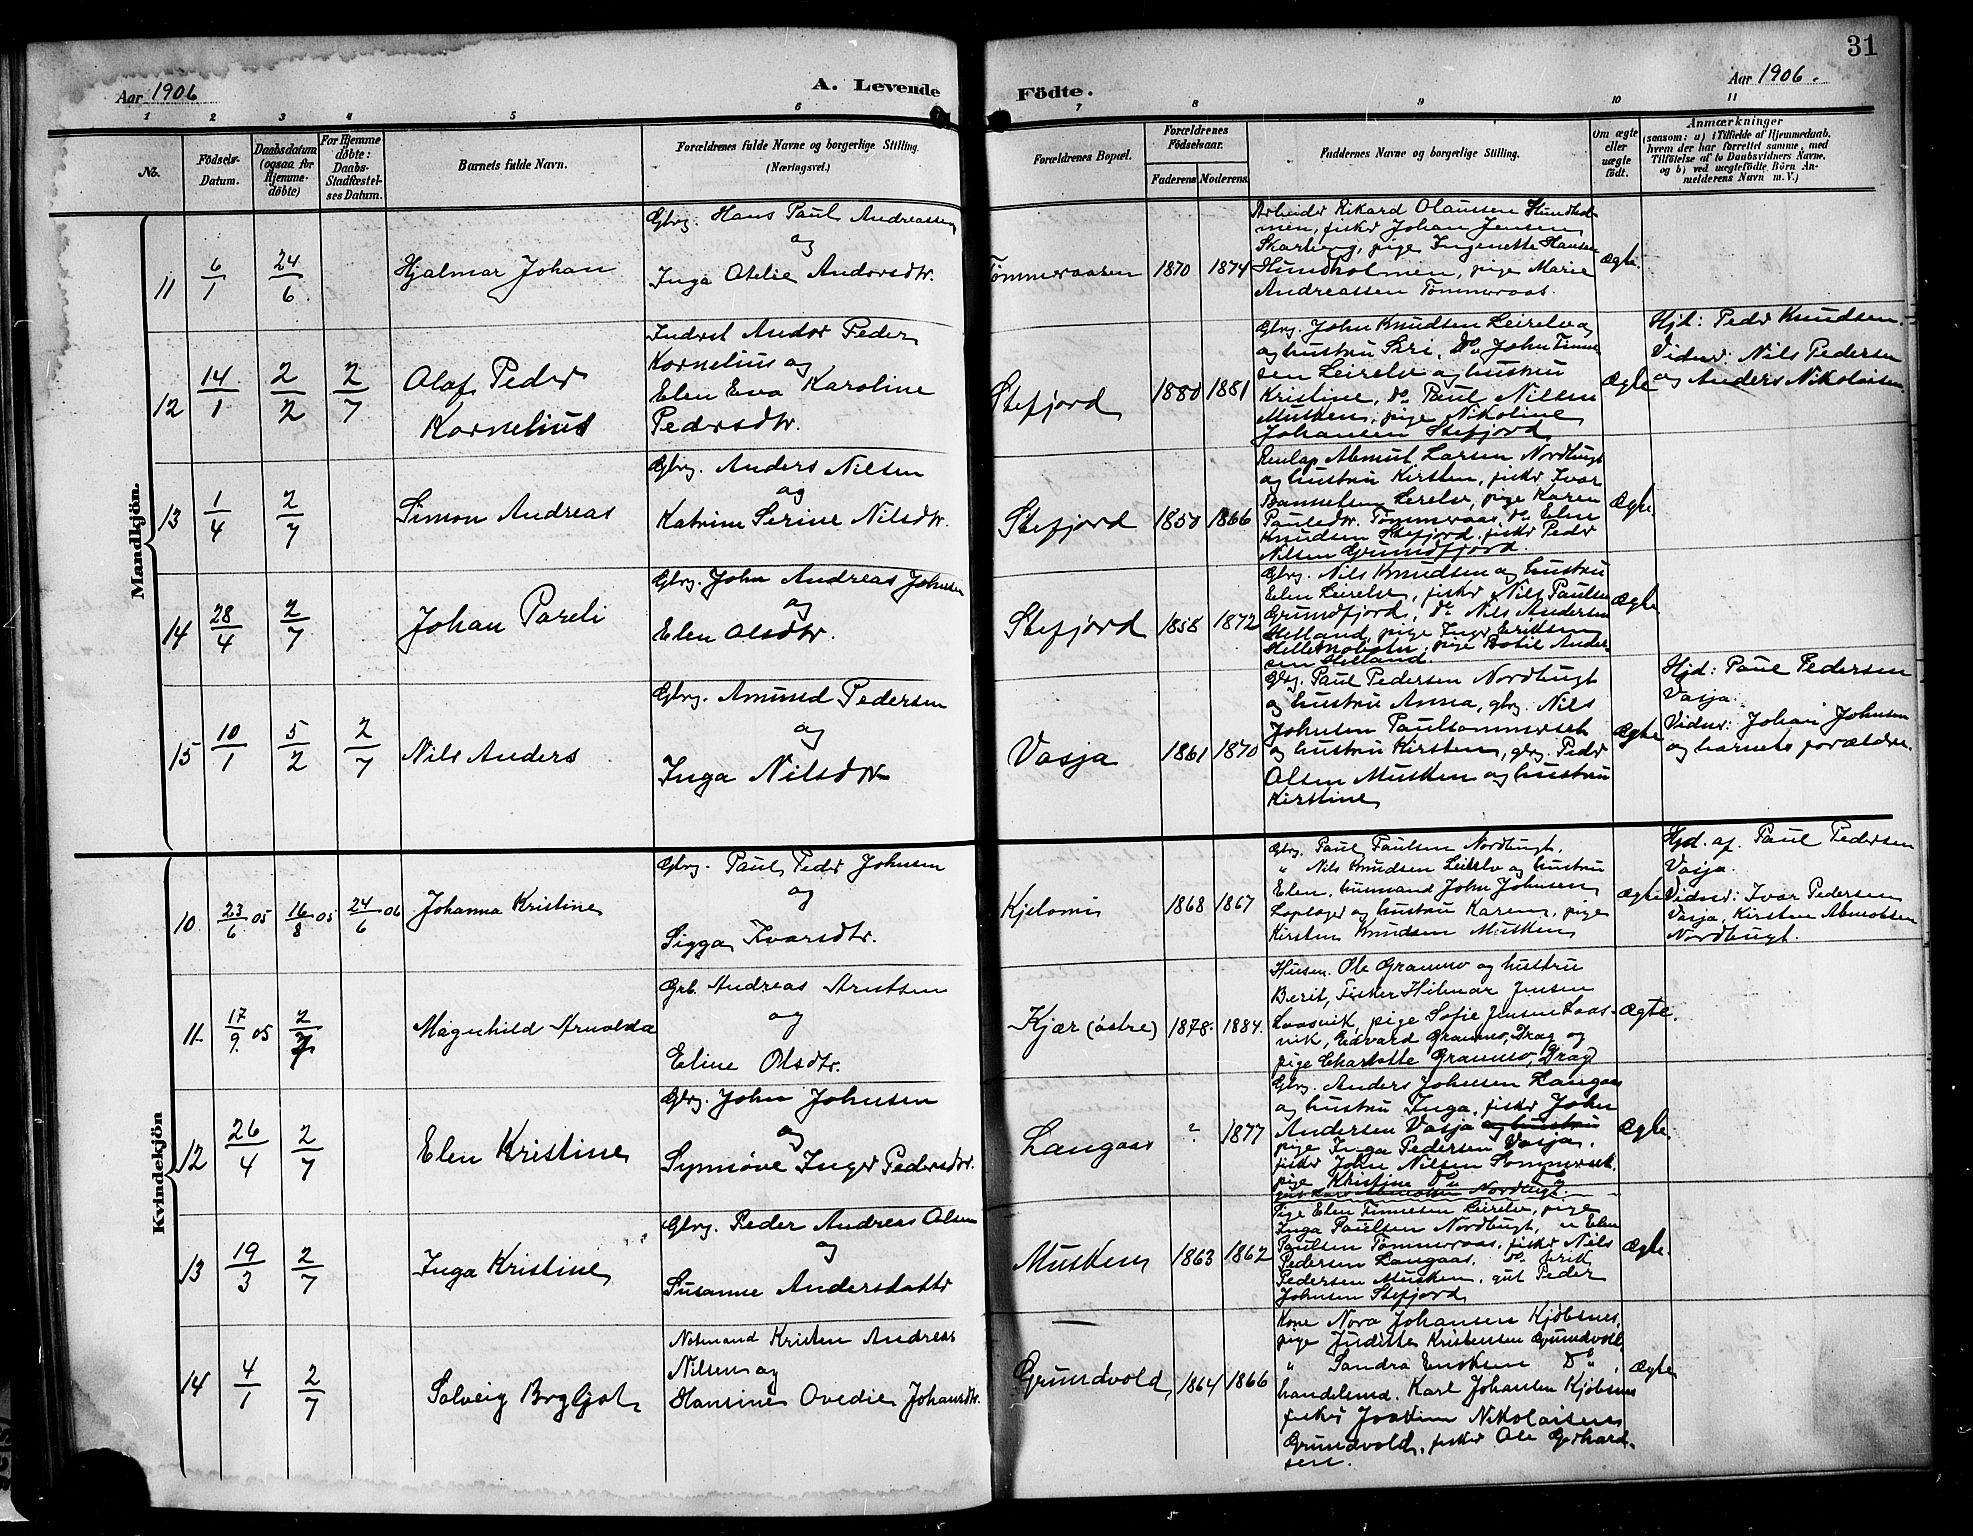 31
Aar 1906
A. Levende
Fødte.
Aar 1906.
1 2 3 4 5 6 7 8 9 10 11
No.
Fødsels-
Datum.
Daabsdatum
(ogsaa for
Hjemme-
døbte)
For Hjemme
døbte:
Daabs-
Stadfæstel-
ses Datum.
Barnets fulde Navn.
Forældrenes fulde Navne og borgerlige Stilling.
(Næringsvei.)
Forældrenes Bopæl.
Forældrenes
Fødselsaar.
Faderens
Moderens
Faddernes Navne og borgerlige Stilling.
Om ægte
eller
uægte
født.
Anmærkninger
(saasom: a) i Tilfælde af Hjemmedaab,
hvem der har forrettet samme, med
Tilføielse af to Daabsvidners Navne,
og b) ved uægtefødte Børn An-
melderens Navn m. V.)
Mandkjön.
11
6/1
24/6
Hjalmar Johan
Gbrg. Hans Paul Andreassen
og
Inga Otelie Andorsdtr.
Tømmeraasen
1870
1874
Arbeider Rikard Olaussen Hundhol-
men, fisker Johan Jensen
Skarberg, pige Ingenette Hansen
Hundholmen, pige Marie
Andreassen Tømmeraas.
Ægte.
12
14/1
2/2
2/7
Olaf Peder
Kornelius
Inderst Andor Peder
Kornelius og
Elen Eva Karoline
Pedersdtr.
Stefjord
1880
1881
Gbrg. John Knudsen Leirelv og
og hustru Siri, Do John Finne-
sen Leirelv og hustru
Kristine, do Paul Nilsen
Musken, pige Nikoline
Johansen Stefjord
Ægte
Hjd: Peder Knudsen.
Vidner: Nils Pedersen
og Anders Nikolaisen
13
1/4
2/7
Simon Andreas
Gbrg. Anders Nilsen
og
Katrine Serine Nilsdtr.
Stefjord
1850
1866
Renlap Abmut Larsen Nordbugt
og hustru Kirsten, fisker Ivar
Leirelv, pige Karen
Paulsdtr. Tømmeraas, do Elen
Knudsen Stefjord, fisker Peder
Nilsen Grundfjord.
Ægte
14
28/4
2/7
Johan Pareli
Gbrg. John Andreas Johnsen
og
Elen Olsdtr.
Stefjord
1858
1872
Gbrg. Nils Knudsen og hustru
Elen Leirelv, fisker Nils Paulsen
Grundfjord, do Nils Andersen
Helland, pige Inger Eriksen
Hellemobotn, pige Botil Ander-
sen Helland.
Ægte
15
10/1
5/2
2/7
Nils Anders
Gbrg. Amund Pedersen
og
Inga Nilsdtr
Vasja
1861
1870
Gbrg. Paul Pedersen Nordbugt
og hustru Anna, gbrg. Nils
Johnsen Paulsommerset
og hustru Kirsten, gbrg. Peder
Olsen Musken og hustru
Kirstine
Ægte
Hjd: Paul Pedersen
Vasja.
Vidner: Johan Johnsen
og barnets forældre.
Kvindekjön
10
23/6 05
16/8 05
24/6 06
Johanna Kristine
Gbrg. Paul Peder Johnsen
og
Sigga Ivarsdtr.
1868
1867
Gbrg. Paul Paulsen Nordbugt.
" Nils Knudsen Leirelv og hustru
Elen, husmand John Johnsen
og hustru Karen, pige
Kirsten Knudsen Musken
Ægte
Hjd. af. Paul Pedersen
Vasja.
Vidner: Ivar Pedersen
Vasja, Kirsten Abmotsen
Nordbugt.
11
17/9 05
2/7
Magnhild Arnolda
Grb. Andreas Arntsen
og
Eline Olsdtr.
Kjær (østre)
1878.
1884.
Husm. Ole Gramso og hustru
Berit, Fisker Hilmar Jensen
Kaasvik, pige Sofie Jensen Kaas-
vik, Edvard Gramso, Drag og
pige Charlotte Gramso, Drag
Ægte.
12
26/4
2/7
Elen Kristine
Gbrg. John Johnsen
og
Synnøve Inger Pedersdtr.
Langaas
?
1877
Gbrg. Anders Johnsen Langaas
og hustru Inga, fisker John
Andersen Vasja og hustru
pige Inga Pedersen Vasja.
fisker John Nilsen Sommerset.
pige Kristine Do
Nordbugt.
Ægte
13
19/3
2/7
Inga Kristine
Gbrg. Peder Andreas Olsen
og
Susanne Andersdatter
Musken
1863
1862
Pige Elen Finnesen Leirelv, pige
Inga Paulsen Nordbugt, " Elen
Paulsen Tømmeraas, fisker Nils
Pedersen Langaas, Do Erik
Pedersen Musken, gut Peder
Johnsen Stefjord
Ægte.
14
4/1
2/7
Solveig Bergljot
Notmand Kristen Andreas
Nilsen og
Hansine Ovedie Johansdtr.
Grundvold
1864
1866
Kone Nora Johansen Kjøbsnes,
pige Juditte Kristensen Grundvold
" Sandra Do,
handelsmd. Karl Johansen Kjøbsnes
fisker Joakim Nikolaisen
Grundvold, fisker Ole Gerhard-
sen.
Ægte